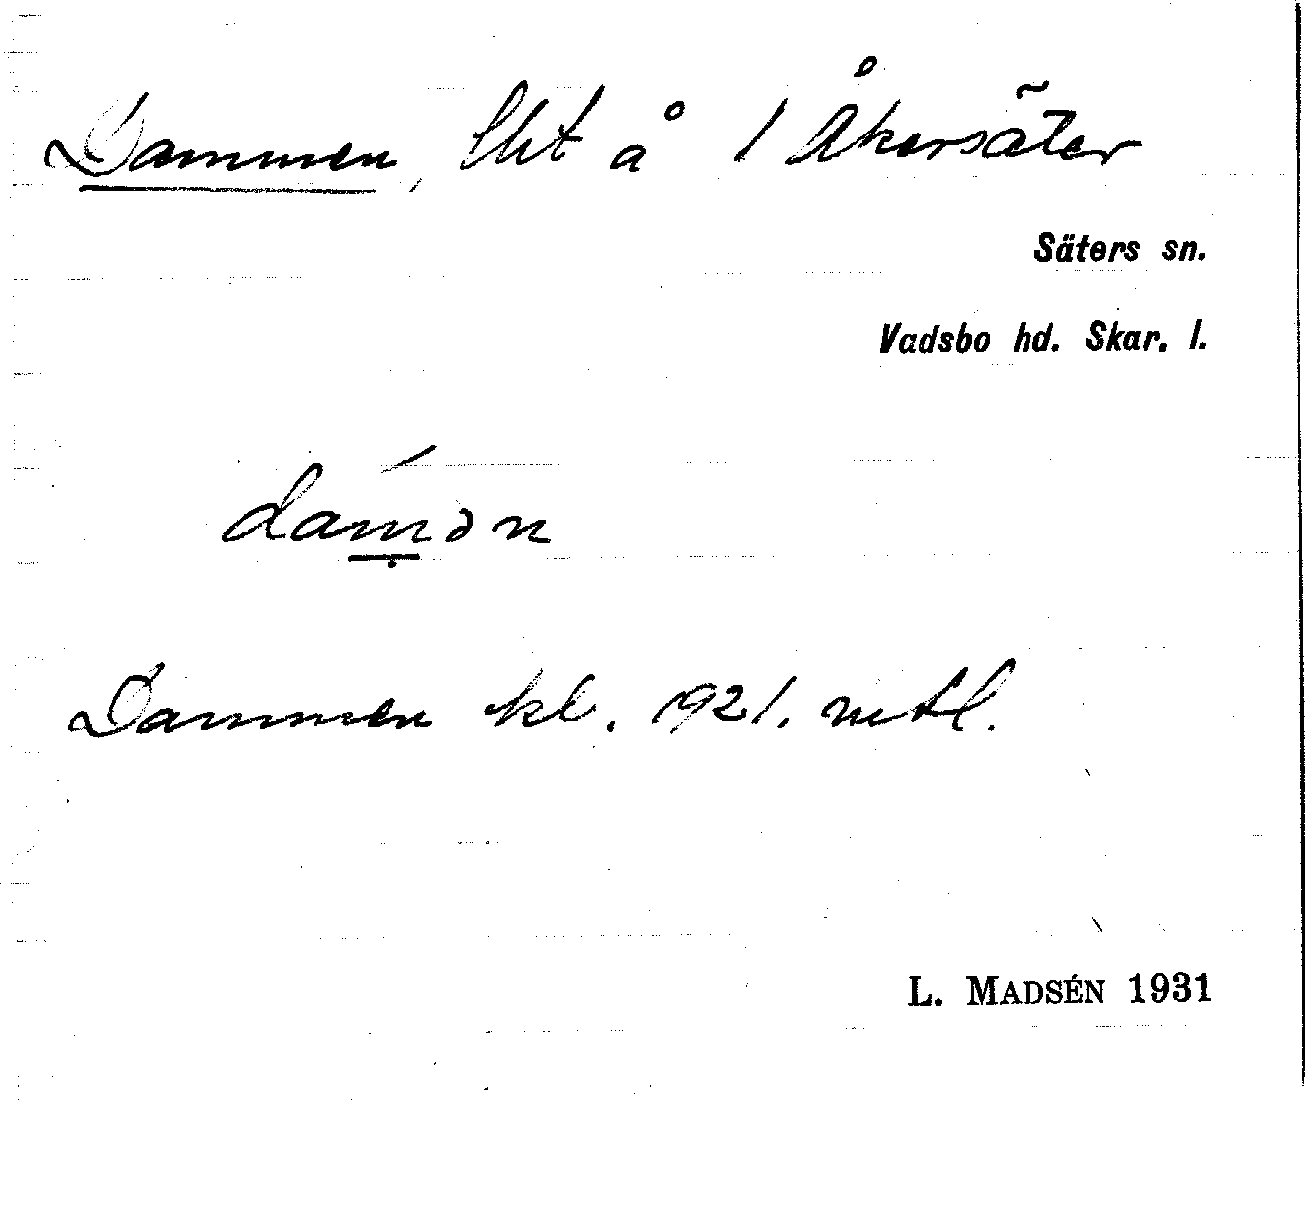 Dammen, lht å 1 Åkersäter
Säters sn.
Vadsbo hd. Skar. l.
damən
Dammen kl. 1921. mtl.
L. MADSÉN 1931